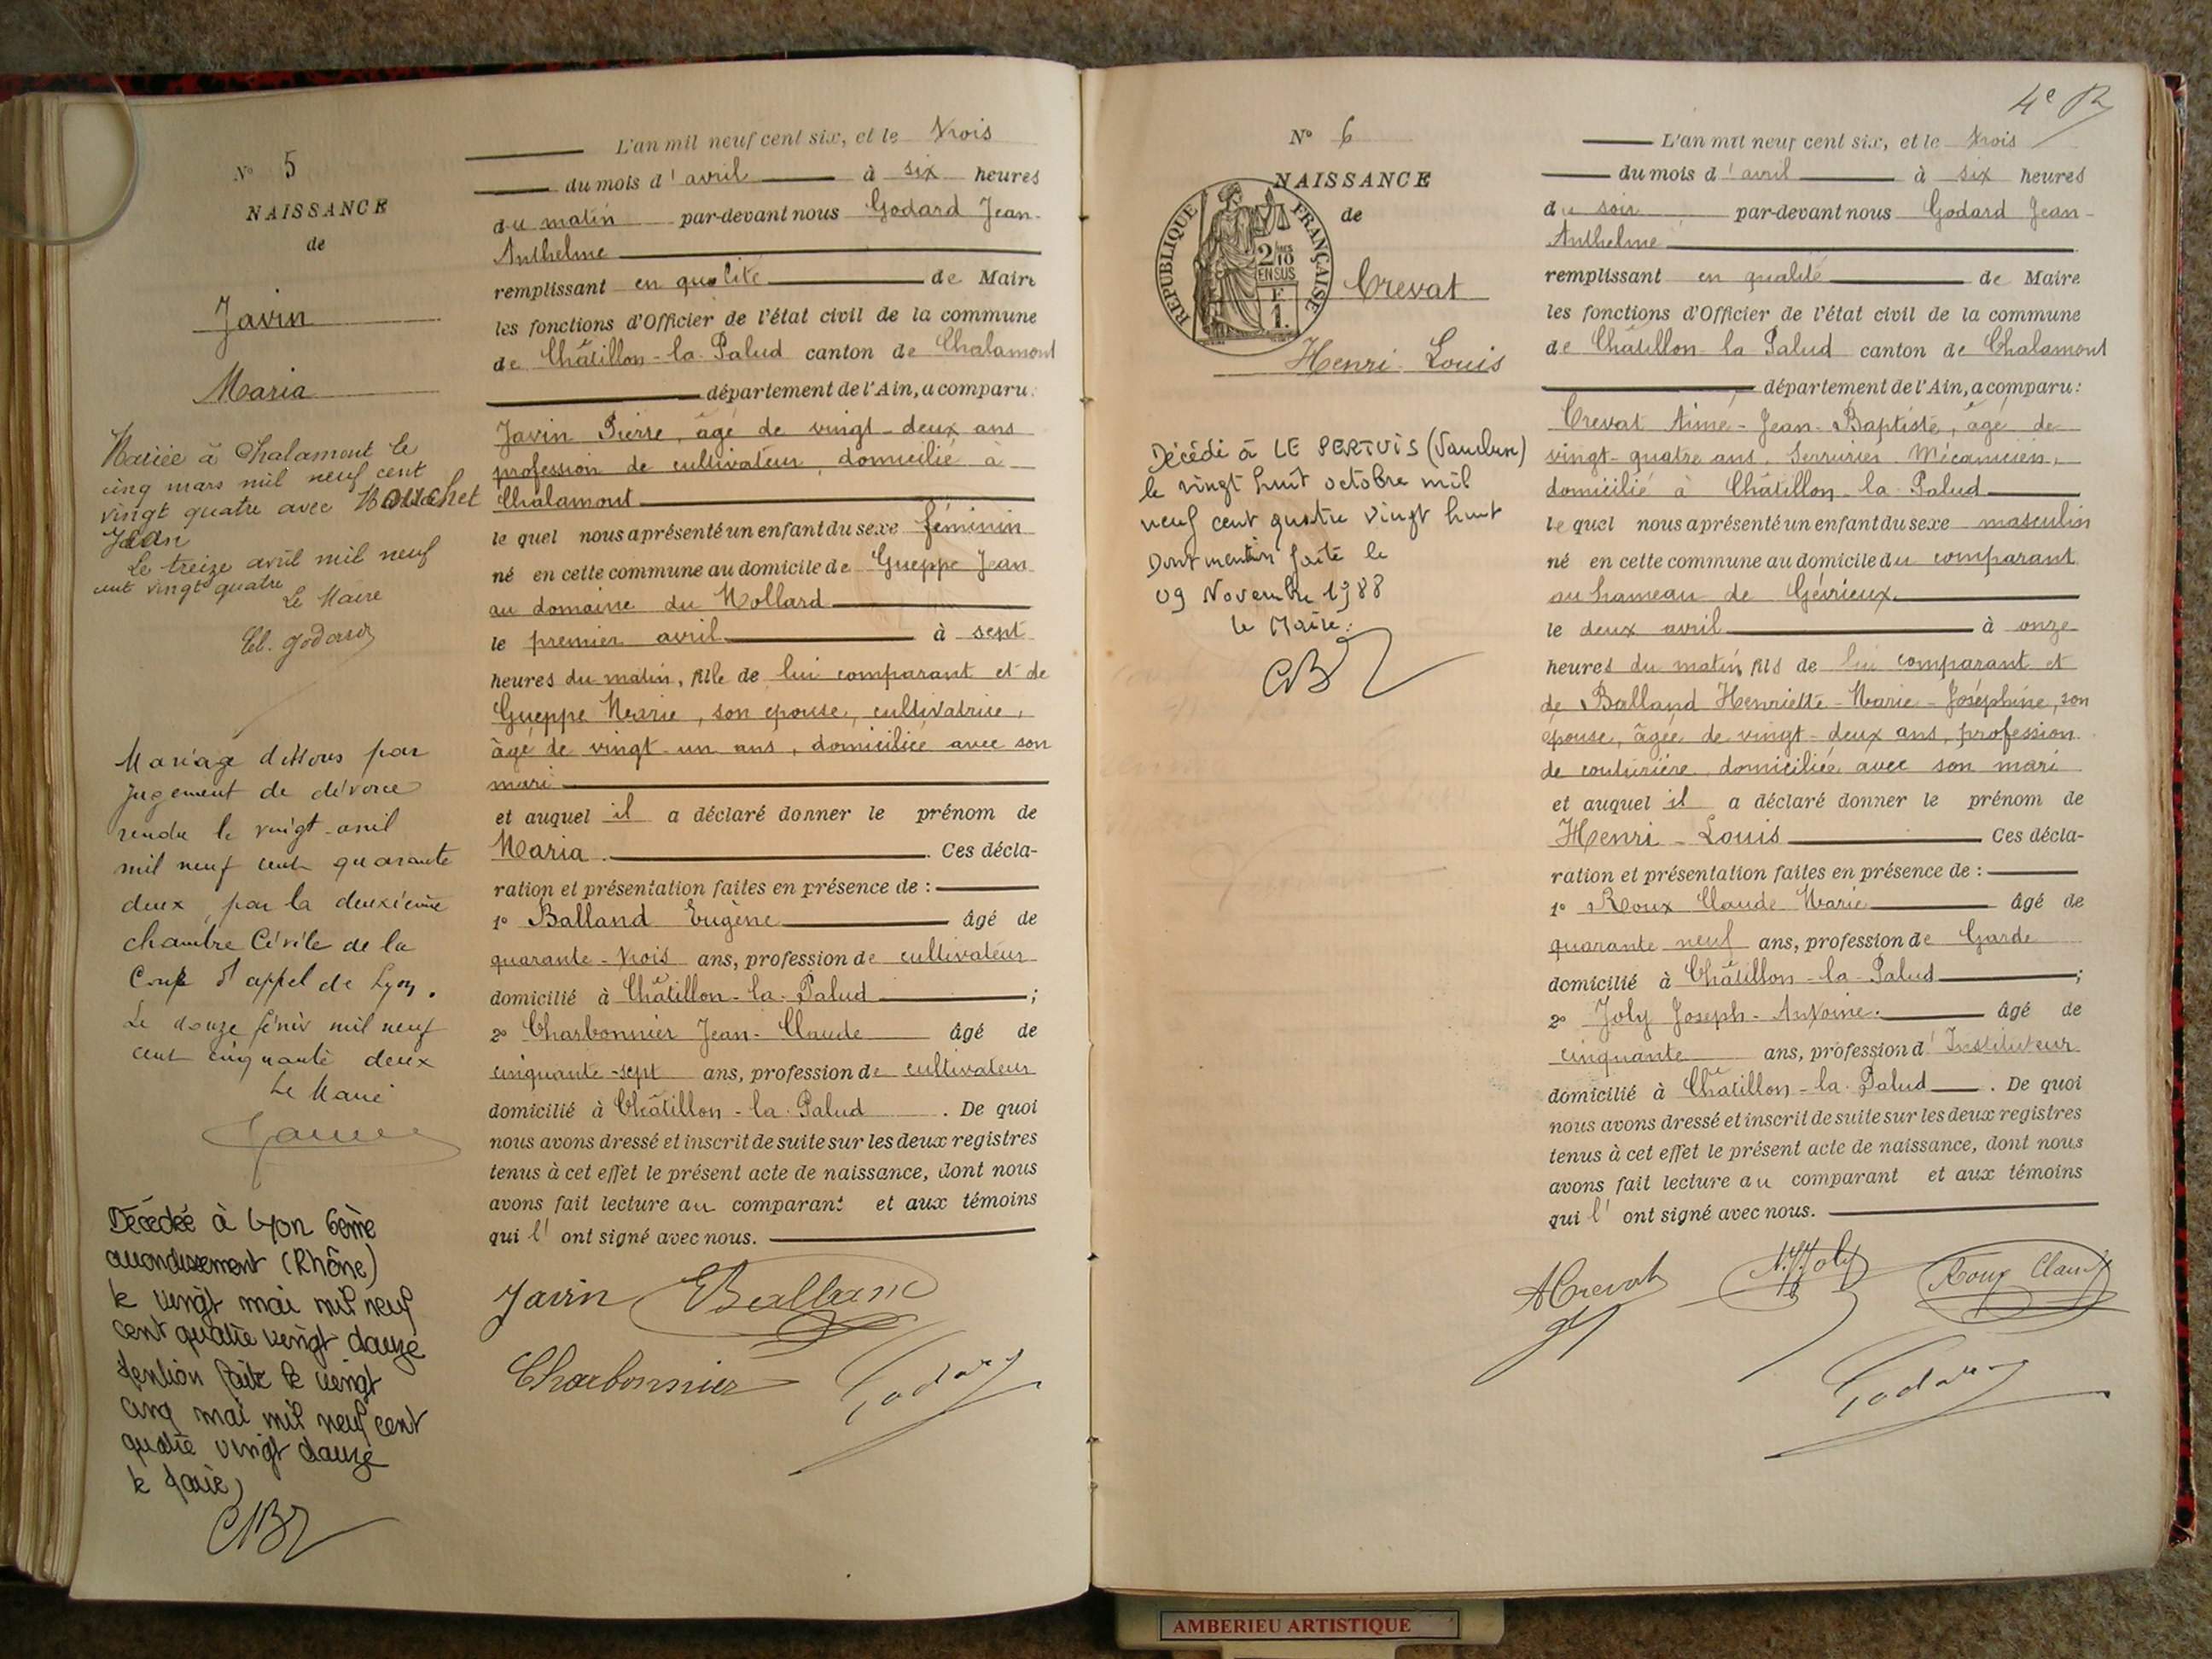 N° 5
NAISSANCE
de
Javin
Maria
Mariée à Chalamont le
cinq mars mil neuf cent
vingt quatre avec
Jean
Le treize avril mil neuf
cent vingt quatre
Le Maire
Godard
Mariage dissous par
jugement de divorce
rendu le vingt avril
mil neuf cent quarante
deux, par la deuxième
chambre Civile de la
Cour d'appel de Lyon.
Le douze février mil neuf
cent cinquante deux
Le Maire
Décédée à Lyon 6ème
arrondissement (Rhône)
le vingt mai mil neuf
cent quatre vingt douze
Mention faite le vingt
cinq mai mil neuf cent
quatre vingt douze
le Maire,
L'an mil neuf cent six, et le trois
du mois d'avril à six heures
du matin par-devant nous Godard Jean-
Anthelme
remplissant en qualité de Maire
les fonctions d'Officier de l'état civil de la commune
de Châtillon-la-Palud canton de Chalamont
département de l'Ain, a comparu:
Javin Pierre, âgé de vingt-deux ans
profession de cultivateur, domicilié à
Chalamont
le quel nous a présenté un enfant du sexe féminin
né en cette commune au domicile de Gueppe Jean
au domaine du Mollard
le premier avril à sept
heures du matin, fille de lui comparant et de
Gueppe Marie, son epouse, cultivatrice,
âgé de vingt-un ans, domiciliée avec son
mari
et auquel il a déclaré donner le prénom de
Maria. Ces décla-
ration et présentation faites en présence de :
1° Balland Eugène âgé de
quarante-trois ans, profession de cultivateur
domicilié à Châtillon-la-Palud ;
2° Charbonnier Jean-Claude âgé de
cinquante-sept ans, profession de cultivateur
domicilié à Châtillon-la-Palud . De quoi
nous avons dressé et inscrit de suite sur les deux registres
tenus à cet effet le présent acte de naissance, dont nous
avons fait lecture au comparant et aux témoins
qui l'ont signé avec nous.
Javin EBalland
Charbonnier Godard
4e
N° 6
NAISSANCE
de
REPUBLIQUE FRANÇAISE
2/10
EN SUS
F
1.
Crevat
Henri Louis
Décédé à LE PERTUIS (Vaucluse)
le vingt huit octobre mil
neuf cent quatre vingt huit
Dont mention faite le
09 Novembre 1988
le Maire:
L'an mil neuf cent six, et le trois
du mois d'avril à six heures
du soir par-devant nous Godard Jean-
Anthelme
remplissant en qualité de Maire
les fonctions d'Officier de l'état civil de la commune
de Châtillon-la-Palud canton de Chalamont
département de l'Ain, a comparu:
Crevat Aimé-Jean-Baptiste, âgé de
vingt-quatre ans, Serrurier Mécanicien,
domicilié à Châtillon-la-Palud
le quel nous a présenté un enfant du sexe masculin
né en cette commune au domicile du comparant
au hameau de Gévrieux
le deux avril à onze
heures du matin, fils de lui comparant et
de Balland Henriette-Marie-Joséphine, son
épouse, âgée de vingt-deux ans, profession
de couturière, domiciliée avec son mari
et auquel il a déclaré donner le prénom de
Henri-Louis Ces décla-
ration et présentation faites en présence de :
1° Roux Claude Marie âgé de
quarante neuf ans, profession de Garde
domicilié à Châtillon-la-Palud ;
2° Joly Joseph-Antoine. âgé de
cinquante ans, profession d'Instituteur
domicilié à Châtillon-la-Palud . De quoi
nous avons dressé et inscrit de suite sur les deux registres
tenus à cet effet le présent acte de naissance, dont nous
avons fait lecture au comparant et aux témoins
qui l'ont signé avec nous.
ACrevat Joly Roux Claude
Godard
AMBERIEU ARTISTIQUE